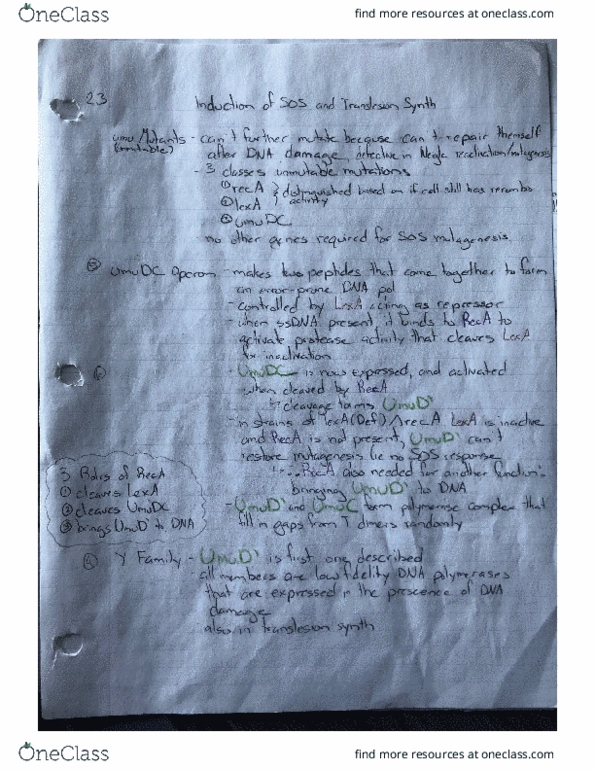 OneClass
find more resources at oneclass.com
23
Induction of SOS and Translesion Synth
umu Mutants - can't further mutate because can't repair themself
after DNA damage, defective in reactivation/mutagenesis
- 3 classes unmutable mutations
① recA } distinguished based on if cell still has recombo
② lexA } activity
③ umuDC
- no other genes required for SOS mutagenesis
UmuDC Operon - makes two peptides that come together to form
an error-prone DNA pol
- controlled by LexA acting as repressor
- when ssDNA present, it binds to RecA to
activate protease activity that cleaves LexA
for inactivation
- UmuDC is now expressed, and activated
when cleaved by RecA
cleavage forms UmuD'
- in strains of lexA(Def)/ΔrecA LexA is inactive
and RecA is not present, UmuD' can't
restore mutagenesis (ie no SOS response
RecA also needed for another function:
bringing UmuD' to DNA
3 Roles of RecA
① cleaves LexA
② cleaves UmuDC
③ brings UmuD' to DNA
- UmuD' and UmuC form polymerase complex that
fill in gaps from T dimers randomly
Y Family - UmuD' is first one described
- all members are low fidelity DNA polymerases
that are expressed in the prescence of DNA
damage
- also in translesion synth
OneClass
find more resources at oneclass.com